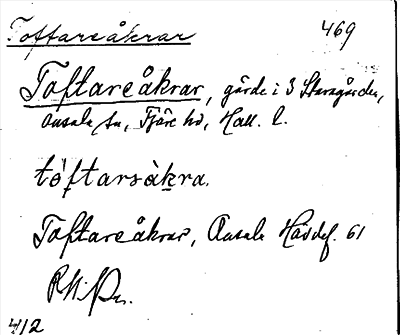 Toftareåkrar 469
Toftareåkrar, gärde i 3 Staragården,
Onsala sn, Fjäre hd, Hall. l.
tóftarsàkra.
Toftareåkrar, Onsala Häsdef. 61
412